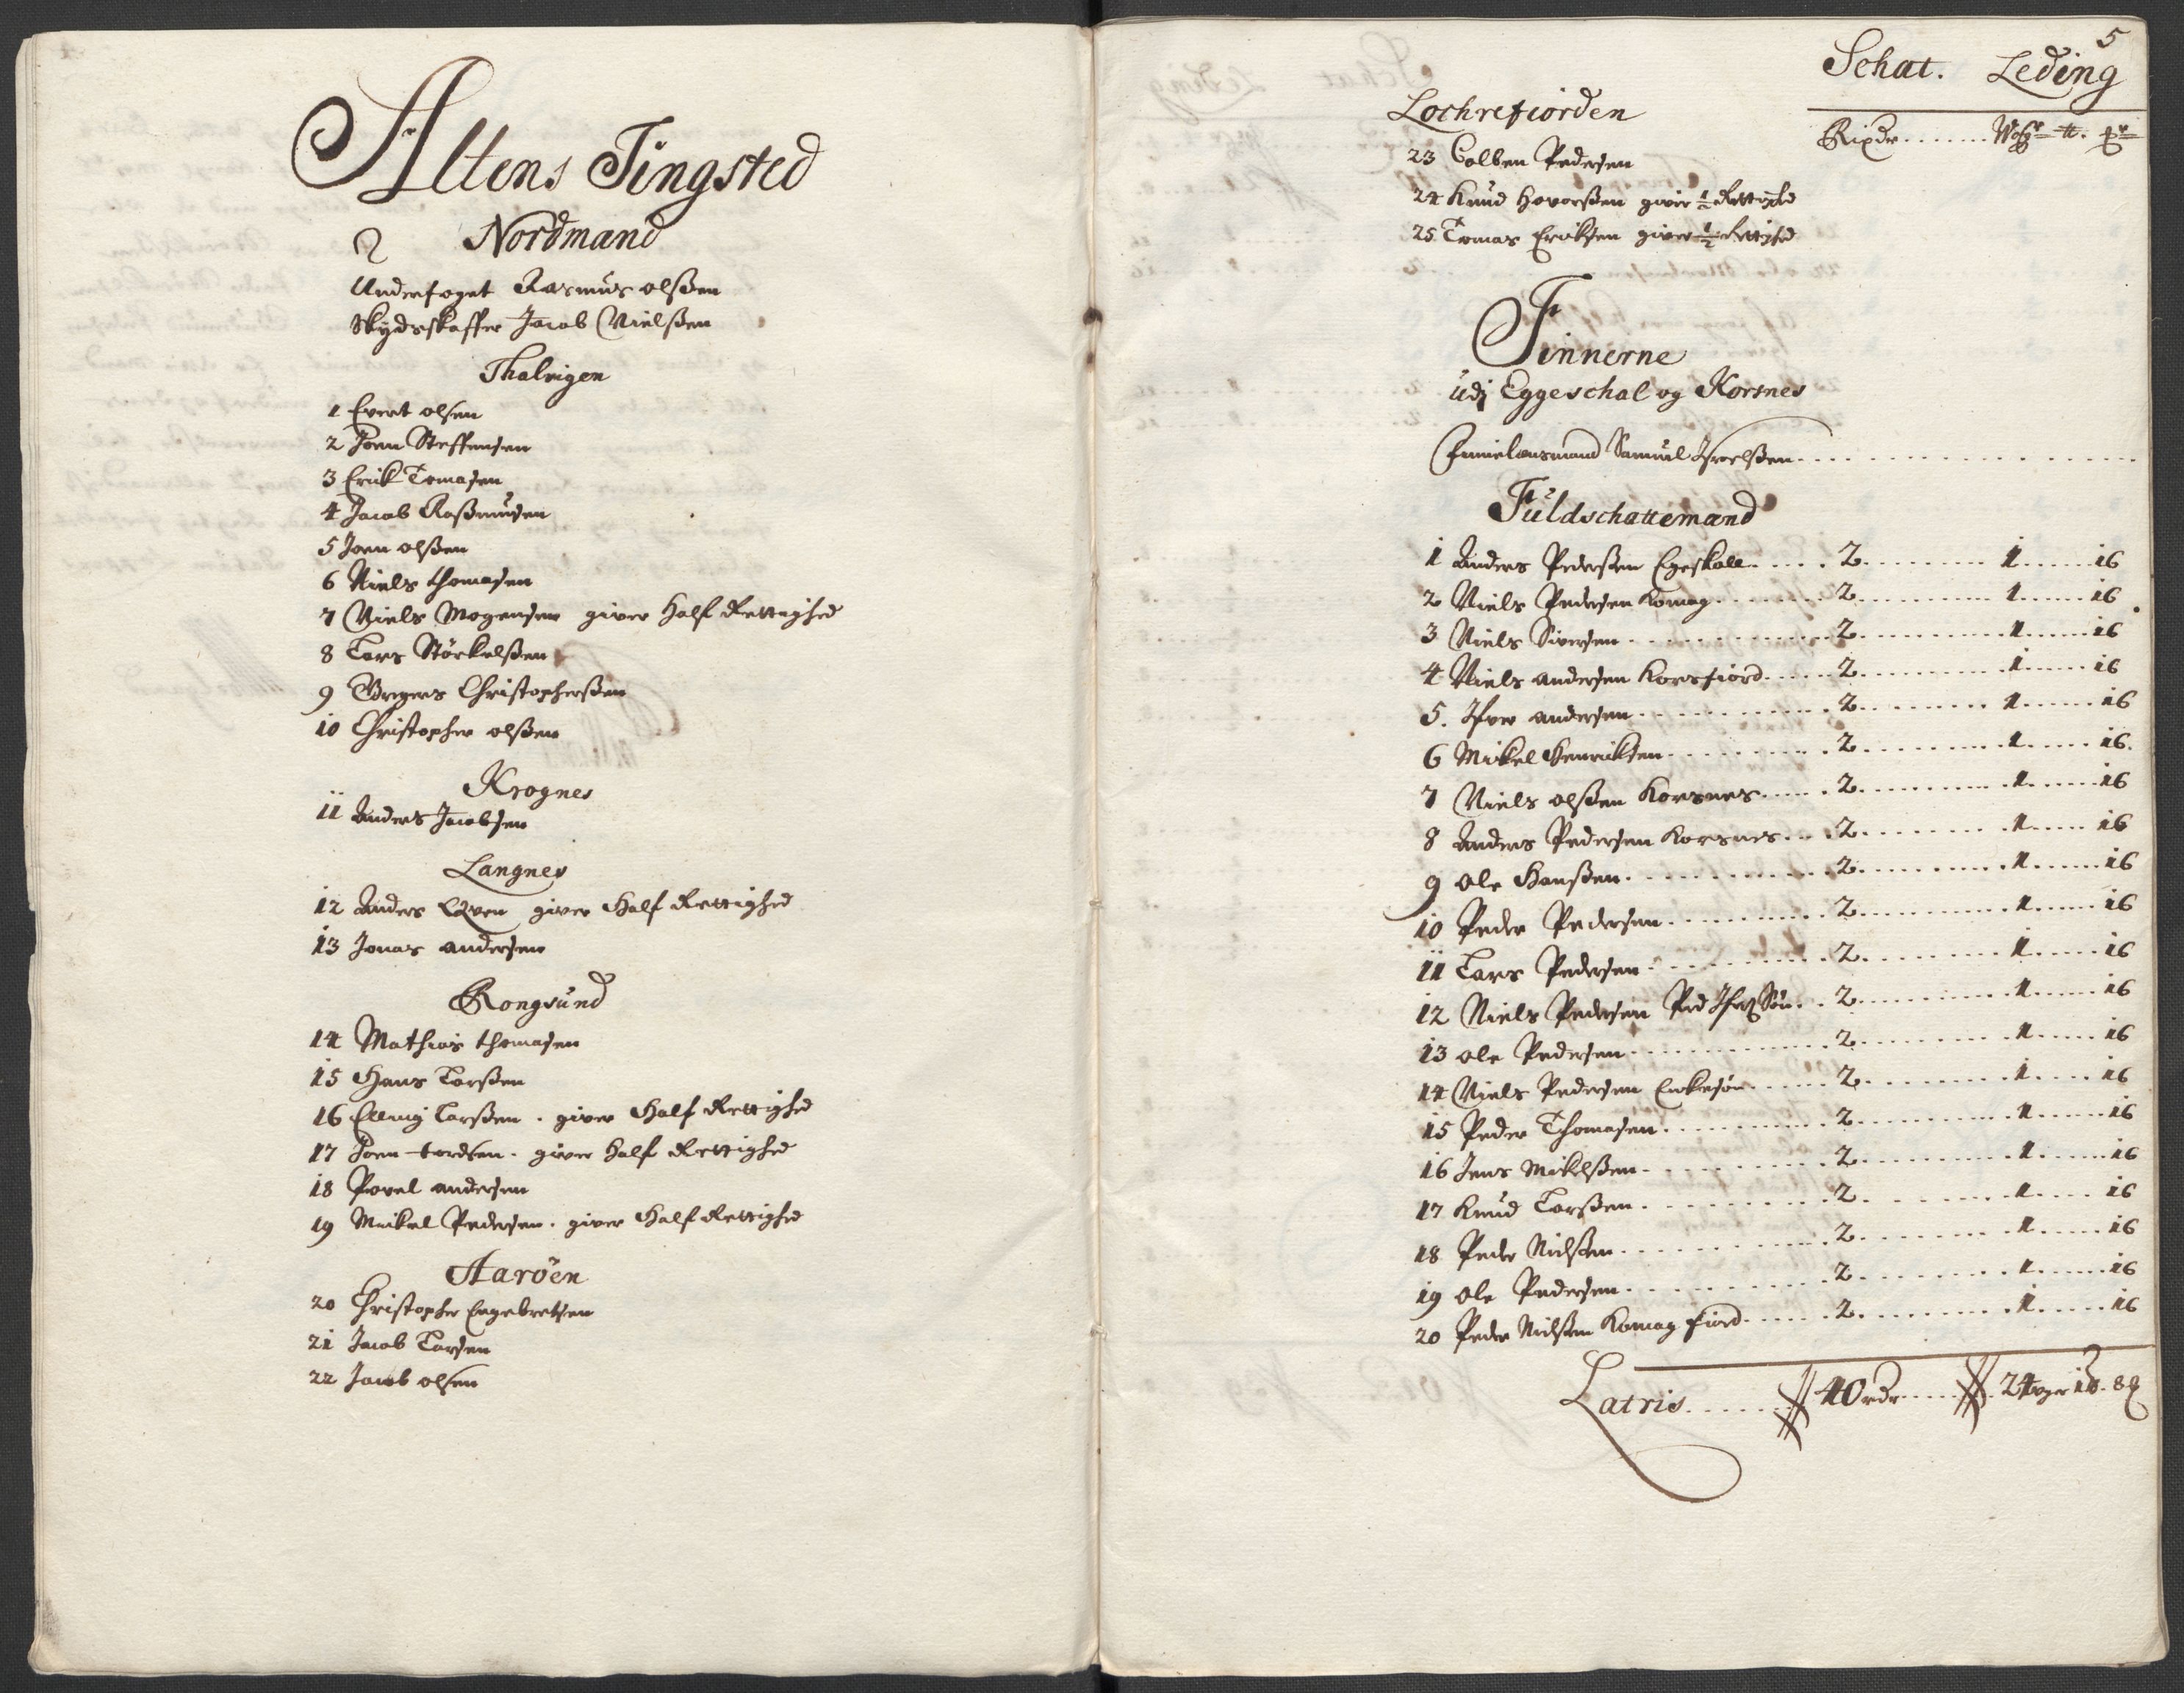 Altens Tingsted
Nordmand
Underfoget Rasmus olßen
Skydsskaffer Jacob Nielßen
Thalvigen
1 Evert olsen
2 Joen Steffensen
3 Erick Tomasen
4 Jacob Raßmusen
5 Joen olßen
6 Niels thomasen
7 Niels Mogensen giver Half Rettighed
8 Lars Störkelßen
9 Bregers Christopherßen
10 Christopher olßen
Krognes
11 Anders Jacobsen
Langnes
12 Anders Qven giver Half Rettighed
13 Jonas andersen
Rongsund
14 Mathias thomasen
15 Hans Larßen
16 Elling Larßen. giver Half Rettighed
17 Joen tordsen. giver Half Rettighed
18 Povel andersen
19 Mickel Pedersen. giver Half Rettighed
Aaröen
20 Christopher Engebretsen
21 Jacob Larsen
22 Jacob olsen
5
Schat. Leding
Rixdr Wogr tt.
Lochrefiorden
23 Colben Pedersen
24 Knud Hovorßen giver ½ Rettighed
25 Tomas Eriksen giver ½ Rettighed
Finnerne
udj Eggeschal og Korsnes
Finnelensmand Samuel Isroelßen
Fuldschattemand
1 Anders Pederßen Egeskall 2 1 16
2 Niels Pedersen Komag 2 1 16
3 Niels Siversen 2 1 16
4 Niels andersen Korsfiord 2 1 16
5. Ifver andersen 2 1 16
6 Mickel Henricksen 2 1 16.
7 Niels olßen Korsnes 2 1 16
8 Anders Pedersen Korsnes 2 1 16
9 ole Hanßen 2 1 16
10 Peder Pedersen 2 1 16
11 Lars Pedersen 2 1 16
12 Niels Pedersen Ped Sön 2 1 16
13 ole Pedersen 2 1 16
14 Niels Pedersen Enkesön 2 1 16
15 Peder Thomasen 2 1 16
16 Jens Mickelßen 2 1 16
17 Knud Larßen 2 1 16
18 Peder Nielßen 2 1 16
19 ole Pedersen 2 1 16
20 Peder Nielßen Komag fiord 2 1 16
Latris 40 rdr 2